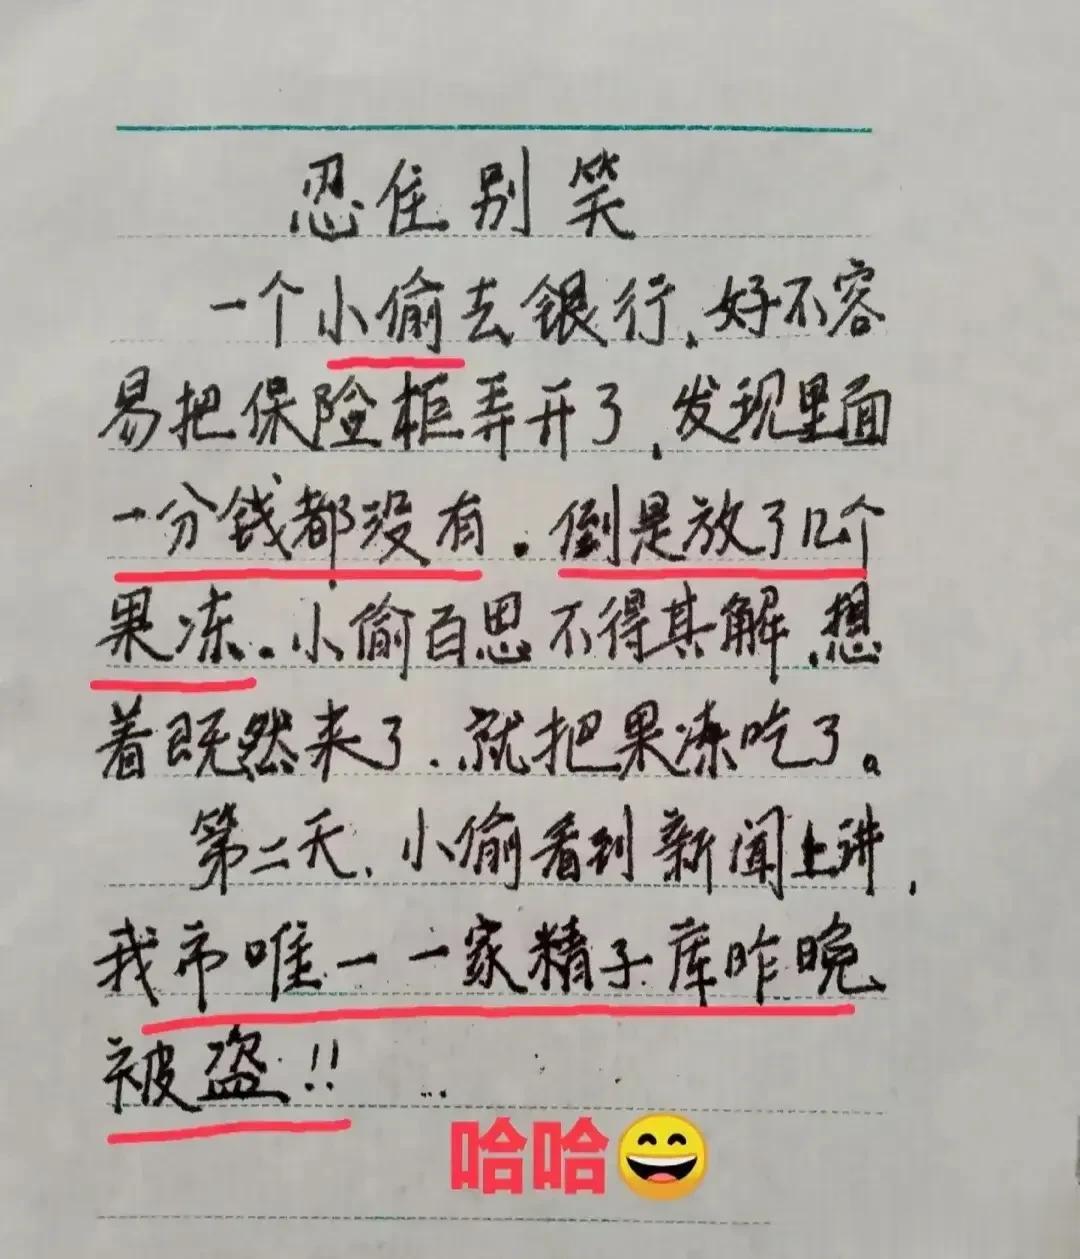 忍住别笑
一个小偷去银行,好不容
易把保险柜弄开了,发现里面
一分钱都没有.倒是放了几个
果冻.小偷百思不得其解,想
着既然来了.就把果冻吃了。
第二天,小偷看到新闻上讲,
我市唯一一家精子库昨晚
被盗!!...
哈哈😄